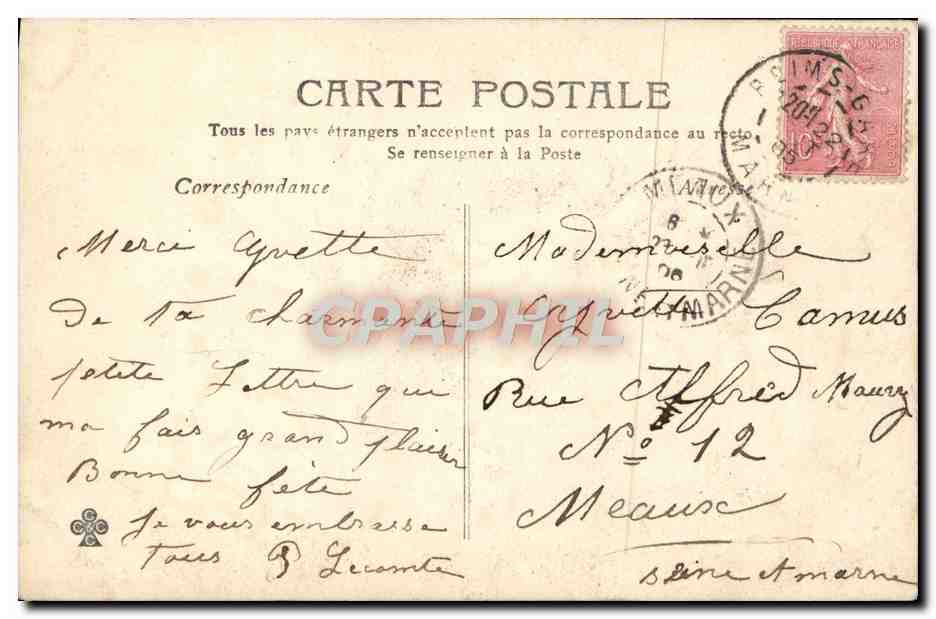 CARTE POSTALE
Tous les pays étrangers n'acceptent pas la correspondance au recto
Se renseigner à la Poste
Correspondance
Adresse
Merci Yvette
de ta charmante
petite Lettre qui
ma fais grand plaisir
Bonne fête
Je vous embrasse
tous
Lecomte
Mademoiselle
Yvette Camus
Rue Alfred Maury
Nº 12
Meaux
Seine et marne
REPUBLIQUE FRANÇAISE
CAPHIL
MARNE
CCCC